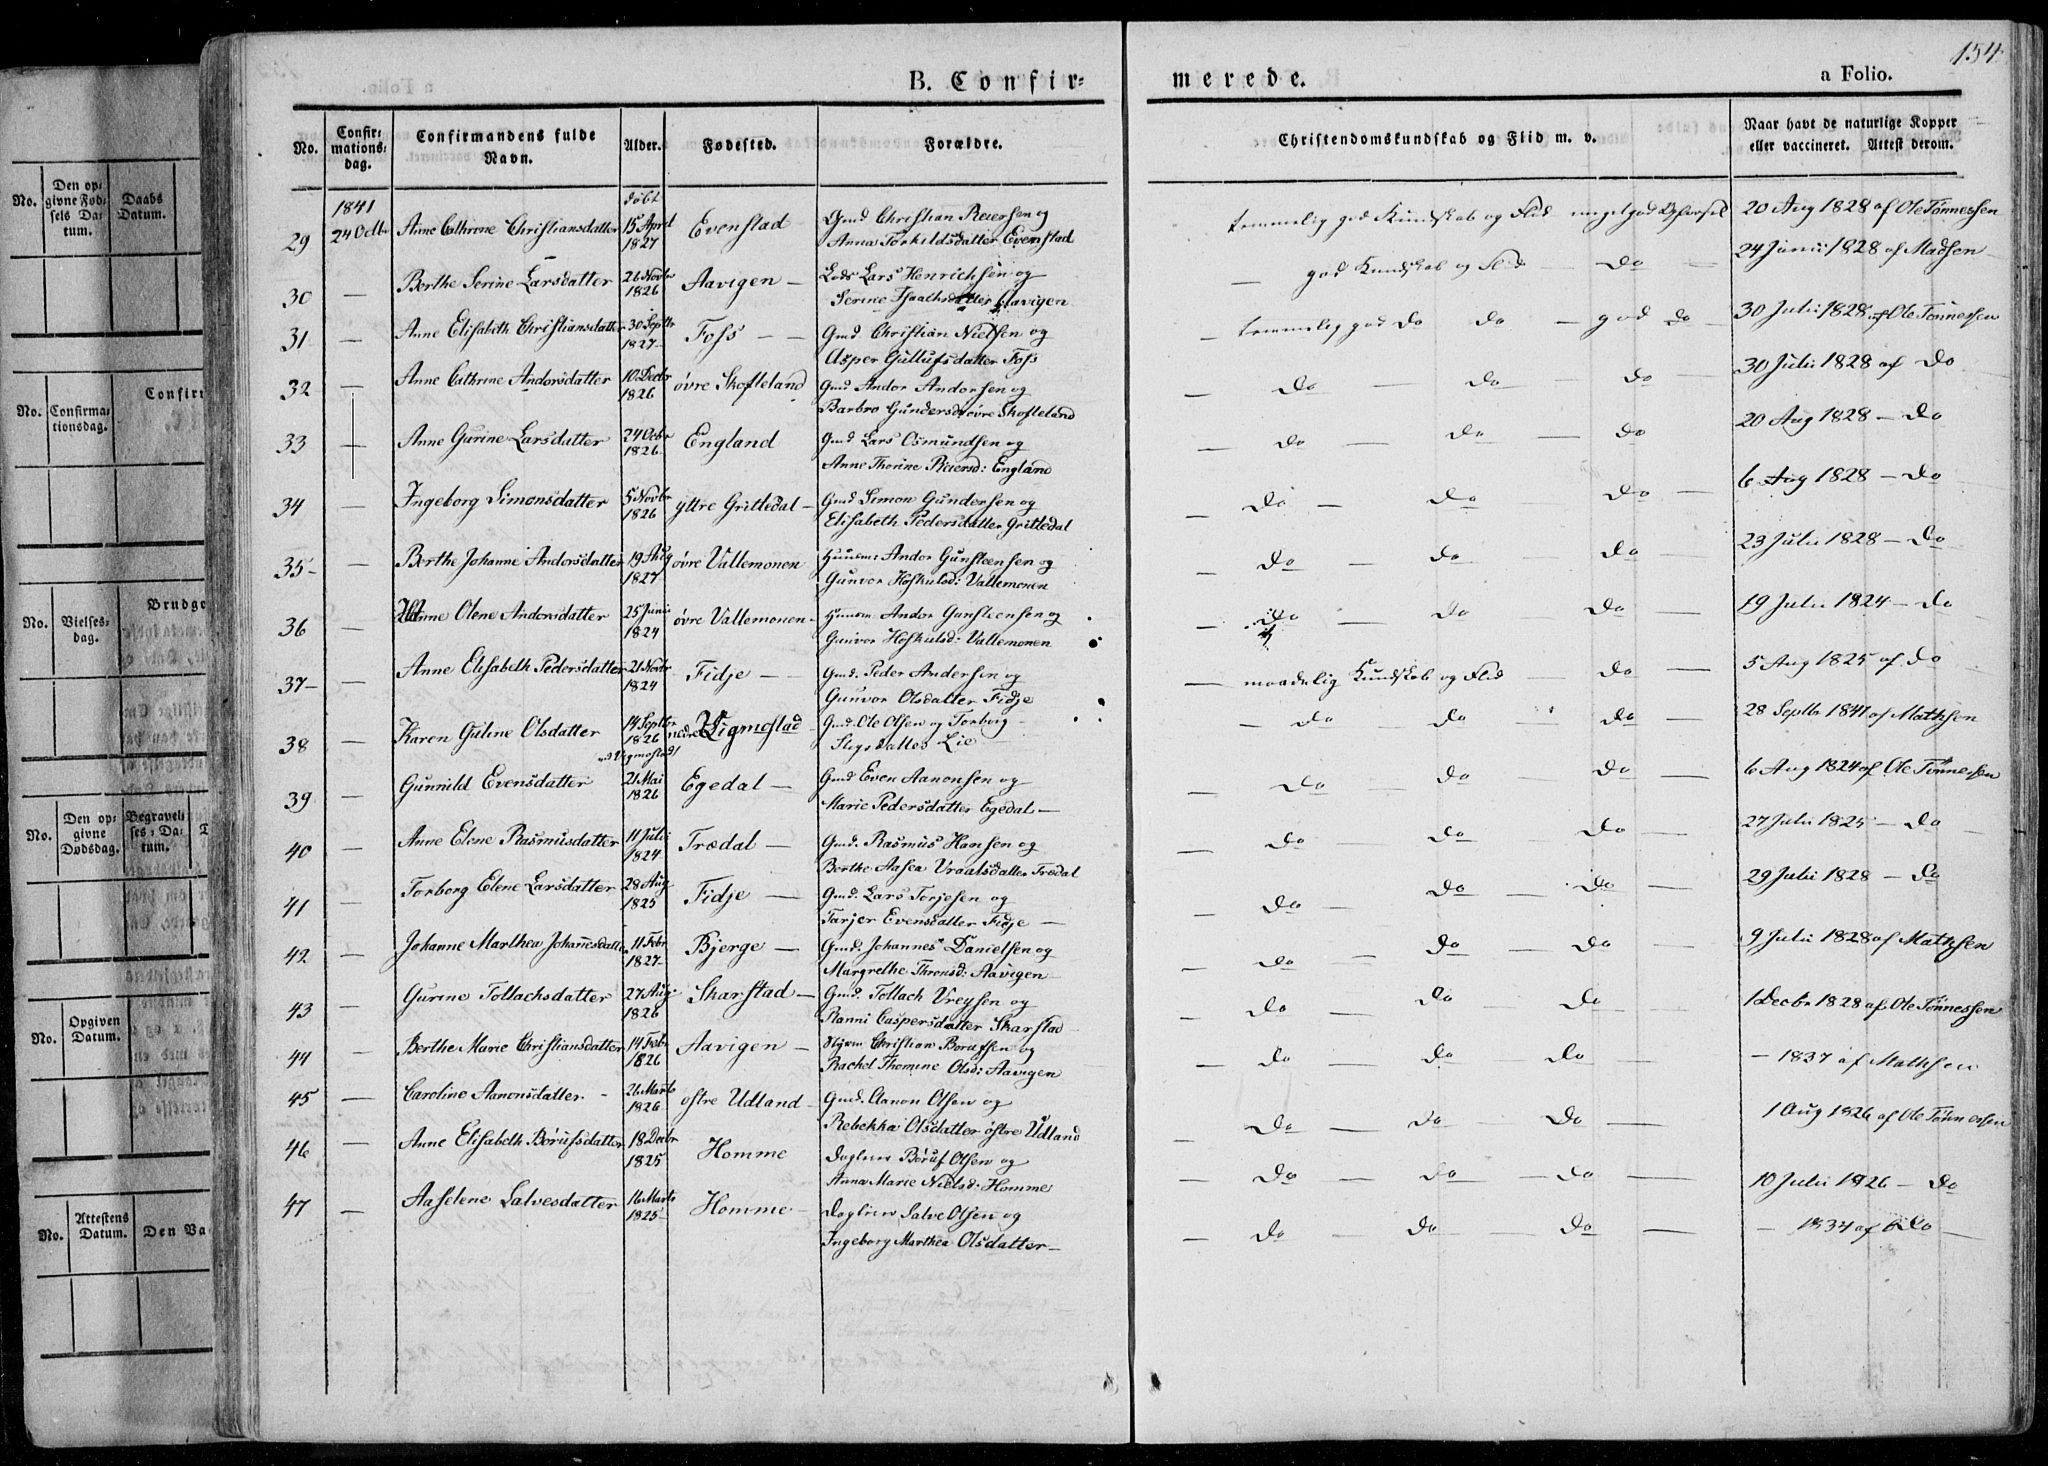 154
B. Confir=
merede.
a Folio.
No.
Confir=
mations=
dag.
Confirmandens fulde
Navn.
Alder.
Fødested.
Forældre.
Christendomskundskab og Flid m. v.
Naar havt de naturlige Kopper
eller vaccineret. Attest derom.
1841
døbt
29 24 Octbr Anne Cathrine Christiansdatter 15 April 1827 Evenstad Gmd Christian Reiersen og
Anna Torkildsdatter Evenstad
temmelig god Kundskab og Flid meget god Opførsel 20 Aug 1828 af Ole Tønnessen
30 — Berthe Serine Larsdatter 26 Novbr 1826 Aavigen — Lods Lars Henrichsen og
Serine Aavigen
— god Kundskab og Flid do — 24 Junii 1828 af Madsen
31 — Anne Elisabeth Christiansdatter 30 Septbr 1827 Foss — — Gmd Christian Nielsen og
Asper Gullufsdatter Foss
— temmelig god do do — god do 30 Julii 1828 af Ole Tønnessen
32 — Anne Cathrine Andorsdatter 10 Decbr 1826 øvre Skofteland Gmd Andor Andorsen og
Barbro Gundersd øvre Skofteland
do — do — do 30 Julii 1828 af do
33 — Anne Gurine Larsdatter 24 Octbr 1826 England Gmd. Lars Osmundsen og
Anne Thorine Reiersd: England
do — do — do 20 Aug 1828 — do
34 — Ingeborg Simonsdatter 5 Novbr 1826 yttre Grittedal — Gmd Simon Gundersen og
Elisabeth Pedersdatter Grittedal
— do — do do — 6 Aug 1828 — do
35 — Berthe Johanne Andorsdatter 19 Aug 1827 øvre Vallemonen Huusm: Andor Gunsteensen og
Gunvor Høskulsd: Vallemonen
— do — do do — 23 Julii 1828 — do
36 — Anne Olene Andorsdatter 25 Junii 1824 øvre Vallemonen Huusm Andor Gunsteensen og
Gunvor Høskulsd: Vallemonen
— do — do — do — 19 Julii 1824 — do
37 — Anne Elisabeth Pedersdatter 21 Novbr 1824 Fidje — Gmd. Peder Andersen og
Gunvor Olsdatter Fidje
— maadelig Kundskab og Flid — do — 5 Aug 1825 af do
38 — Karen Guline Olsdatter 14 Septbr 1826 nedre Vigmostad Gmd. Ole Olsen og Torborg
Lie
— do — do — do — 28 Septbr 1841 af Mathsen
39 — Gunnild Evensdatter 21 Mai 1826 Egedal — Gmd Even Aanonsen og
Marie Pedersdatter Egedal —
— do — do — do — 6 Aug 1824 af Ole Tønnessen
40 — Anne Elene Rasmusdatter 11 Julii 1824 Trædal — Gmd. Rasmus Hansen og
Berthe Aasea Vraalsdatter Trædal
— do — do — do 27 Julii 1825 — do
41 — Torborg Elene Larsdatter 28 Aug 1825 Fidje — Gmd. Lars Torjesen og
Tarjer Evensdatter Fidje —
— do — do — do — 29 Julii 1828 — do
42 — Johanne Marthea Johannesdatter 11 Febr 1827 Bjerge — Gmd. Johannes Danielsen og
Margrethe Thronsd: Aavigen
— do — do — do — 9 Julii 1828 af Mathsen
43 — Gurine Tollachsdatter 27 Aug 1826 Skarstad — Gmd. Tollach Vreysen og
Ranni Caspersdatter Skarstad
— do — do — do — 1 Decbr 1828 af Ole Tønnessen
44 — Berthe Marie Christiansdatter 14 Febr 1826 Aavigen — Christian Borufsen og
Rachel Thomine Olsd: Aavigen
— do — do — do — — 1837 af Mathsen
45 — Caroline Aanonsdatter 26 Marts 1826 østre Udland — Gmd. Aanon Olsen og
Rebekka Olsdatter østre Udland
— do — do — do — 1 Aug 1826 af Ole Tønnessen
46 — Anne Elisabeth Børufsdatter 18 Decbr 1825 Homme Børuf Olsen og
Anna Marie Nielsd: Homme
— do — do — do — 10 Julii 1826 — do
47 — Aaselene Salvesdatter 16 Marts 1825 Homme — Salve Olsen og
Ingeborg Marthea Olsdatter —
— do — do — do — — 1834 af do
No.
Den op=
givne Fød=
sels Da=
tum.
Daabs
Datum.
No.
Confirma=
tionsdag.
Confir
No.
Vielses=
dag.
Brudge
No.
Den op=
givne
Dødsdag.
Begravel=
ses = Da=
tum.
No.
Opgiven
Datum.
No.
Attestens
Datum.
Den Va